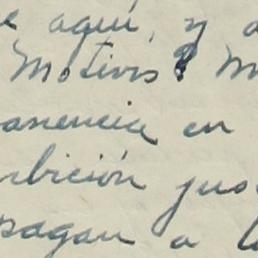 e aquí, y a
Motivos
anencia en
mbición jus
pagan a l